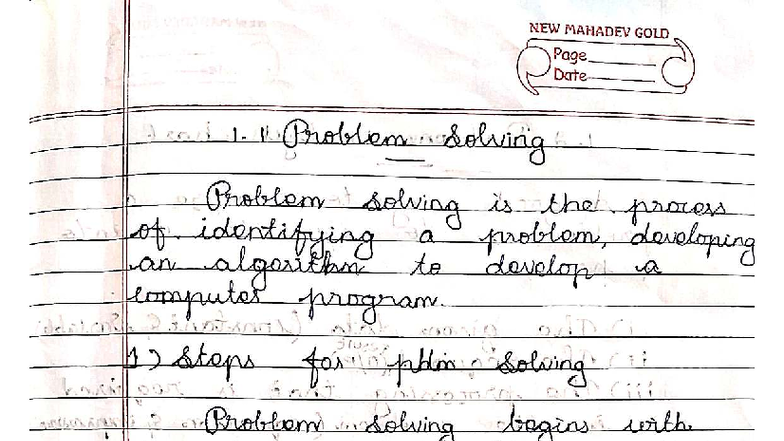 NEW MAHADEV GOLD
Page
Date
1.1 Problem Solving
Problem solving is the process
of identifying a problem, developing
an algorithm to develop a
computer program.
1) Steps for pblm Solving
Problem solving begins with